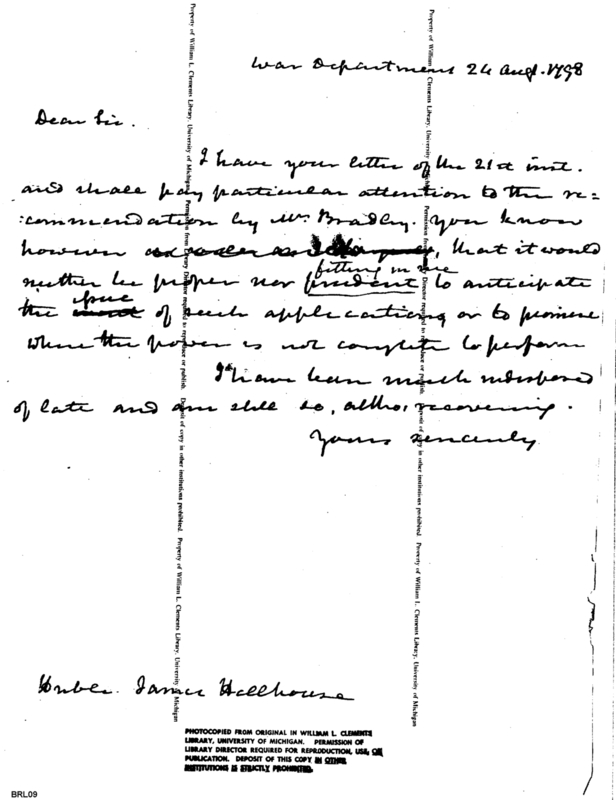 War Department 24 Augt. 1798
Dear Sir.
I have your letter of the 21st inst.
and shall pay particular attention to the re=
:commendation by Mr. Bradley. You know
however, that it would
fitting in me
neither be proper nor prudent to anticipate
issue
the of such applications or to promise
where the power is not complete to perform
I have been much indisposed
of late and am still so, altho, recovering.
Yours sincerely
Honble. James Hillhouse
Property of William L. Clements Library, University of Michigan. Permission from Library Director required to reproduce or publish. Deposit of copy in other institutions prohibited. Property of William L. Clements Library, University of Michigan
Property of William L. Clements Library, University of Michigan. Permission from Library Director required to reproduce or publish. Deposit of copy in other institutions prohibited. Property of William L. Clements Library, University of Michigan
PHOTOCOPIED FROM ORIGINAL IN WILLIAM L. CLEMENTS
LIBRARY, UNIVERSITY OF MICHIGAN. PERMISSION OF
LIBRARY DIRECTOR REQUIRED FOR REPRODUCTION, USE, OR
PUBLICATION. DEPOSIT OF THIS COPY IN OTHER
INSTITUTIONS IS STRICTLY PROHIBITED.
BRL09